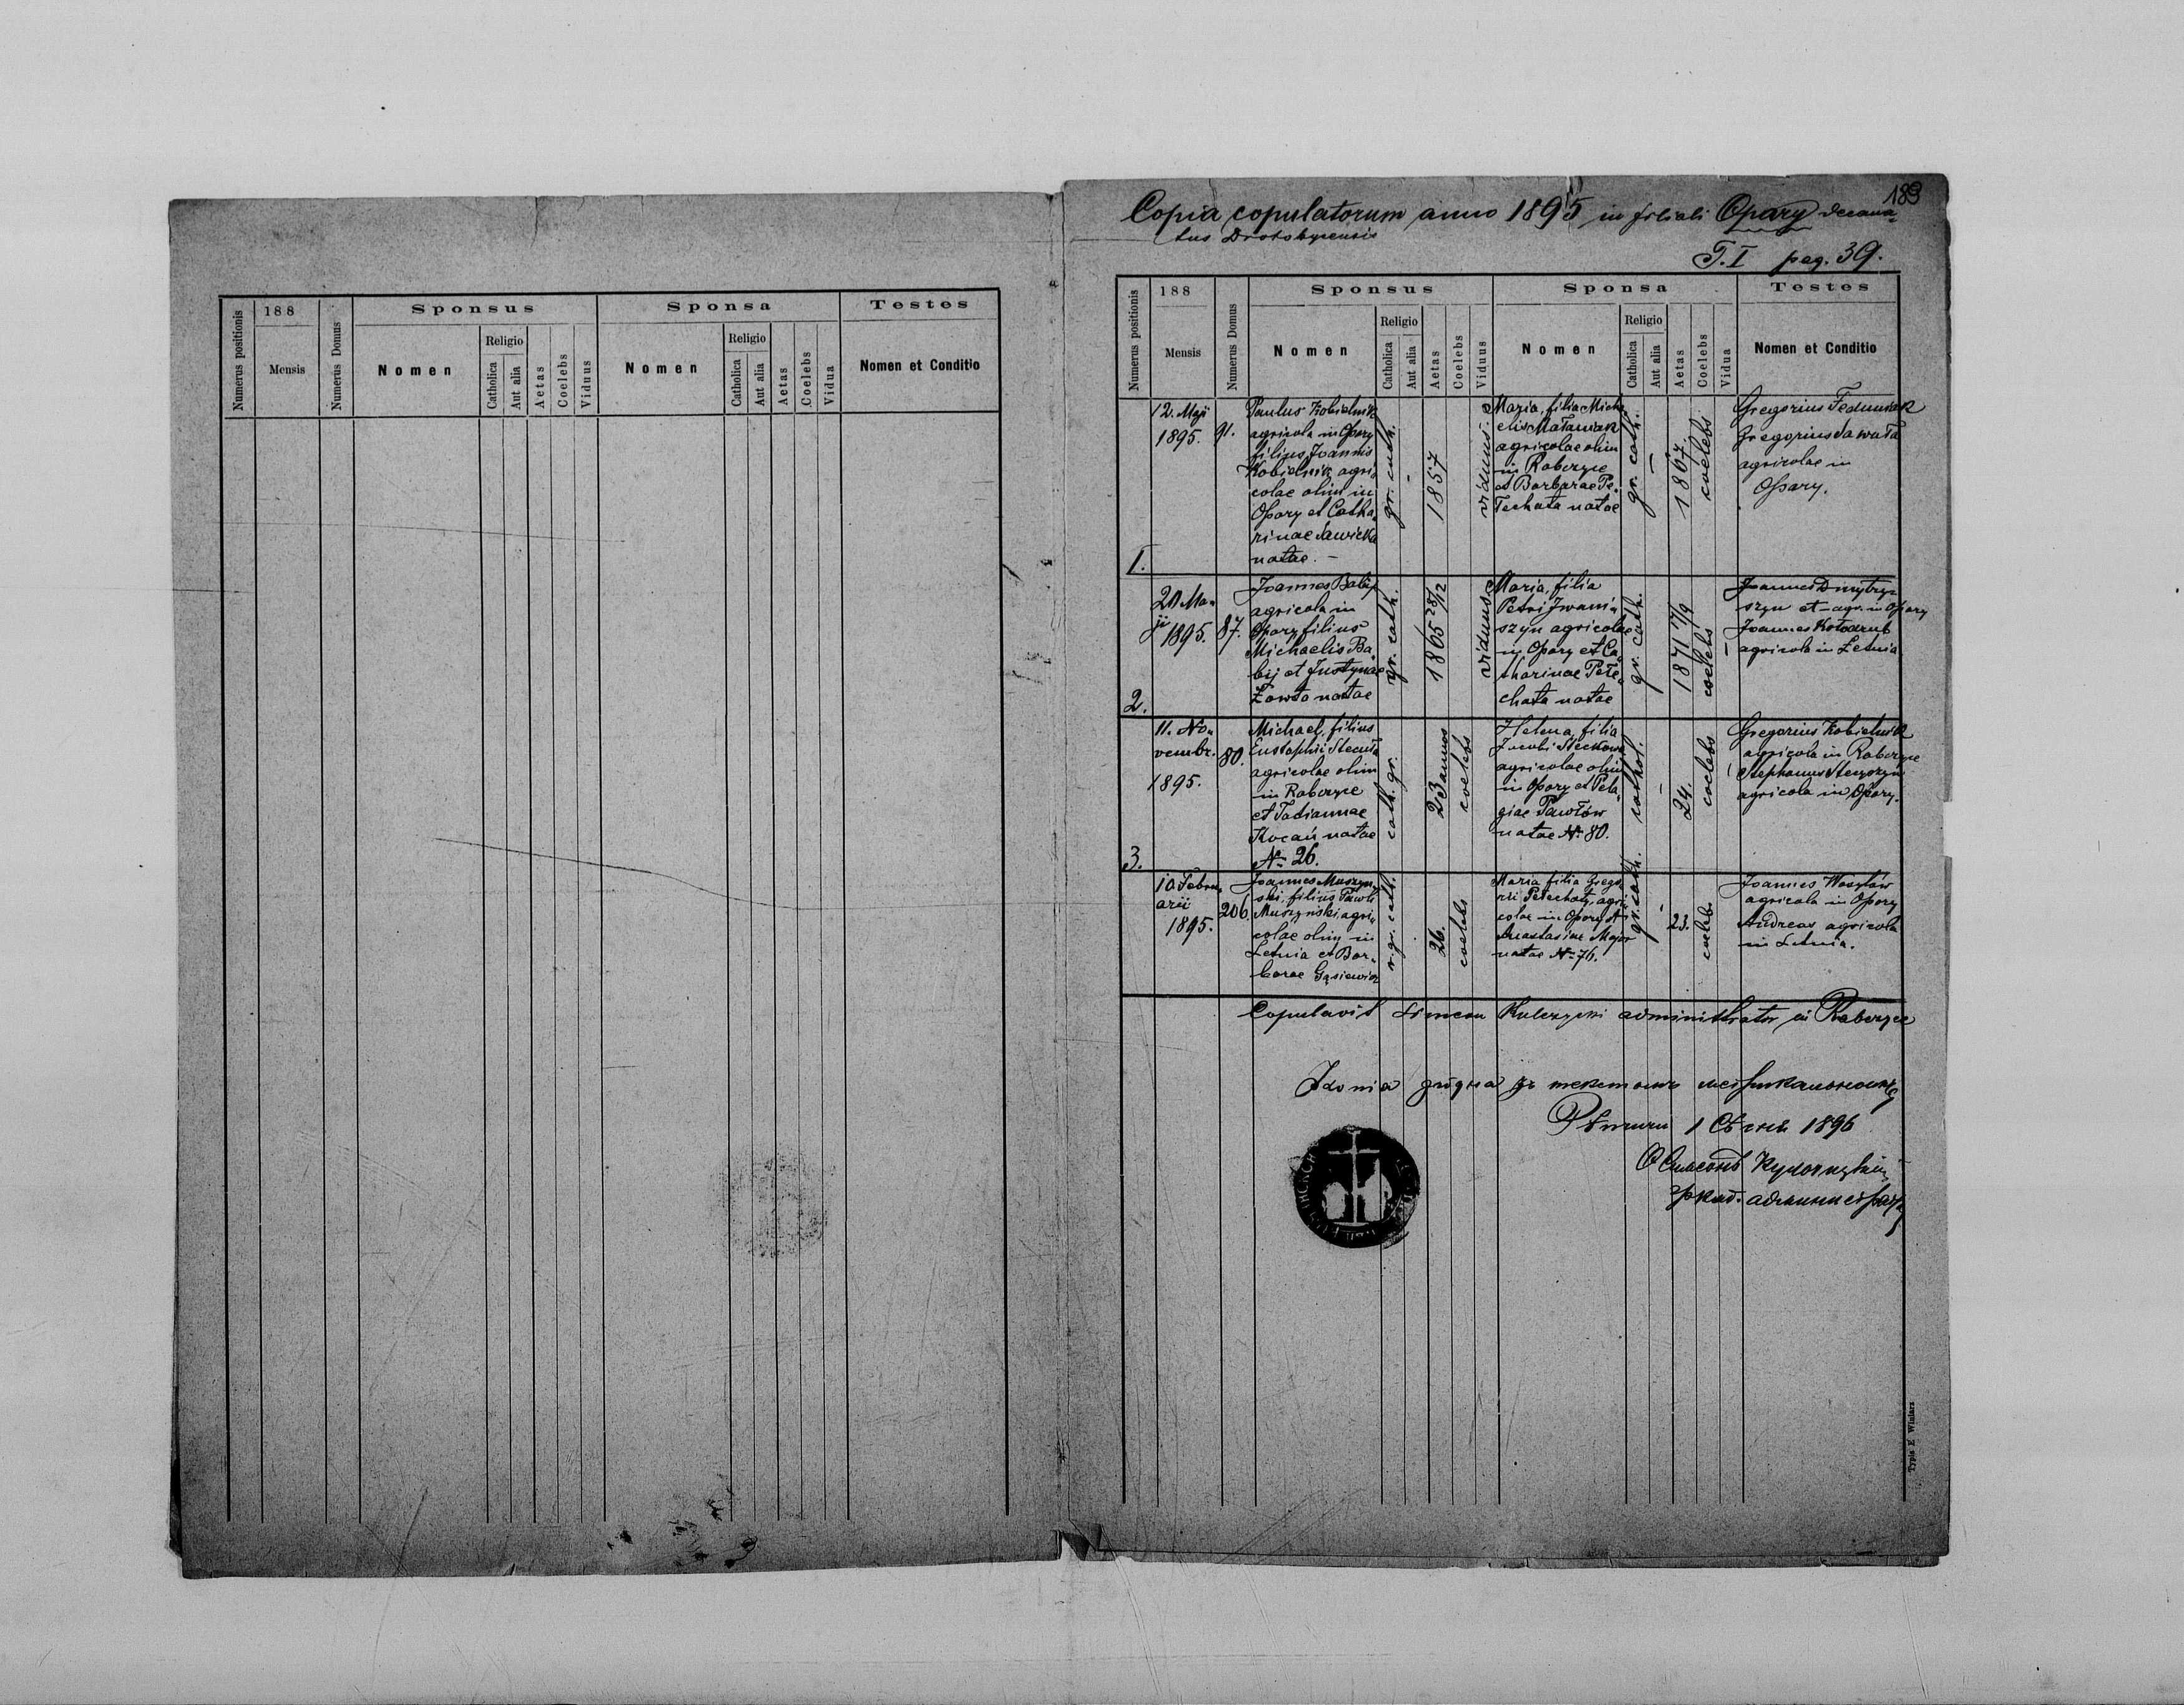 188
Sponsus
Sponsa
Testes
Numerus positionis
Mensis
Numerus Domus
Nomen
Religio
Catholica
Aut alia
Aetas
Coelebs
Viduus
Nomen
Religio
Catholica
Aut alia
Aetas
Coelebs
Vidua
Nomen et Conditio
183
Copia copulatorum anno 1895 in filiali Opary decana-
tus Drohobycensis
T. I pag. 39.
188
Sponsus
Sponsa
Testes
Numerus positionis
Mensis
Numerus Domus
Nomen
Religio
Catholica
Aut alia
Aetas
Coelebs
Viduus
Nomen
Religio
Catholica
Aut alia
Aetas
Coelebs
Vidua
Nomen et Conditio
1.
12. Maji
1895.
91.
Paulus Kobielnik
agricola in Opary
filius Joannis
Kobielnik agri-
colae olim in
Opary et Catha-
rinae Sawicka
natae. –
gr. cath.
–
1857
viduus.
Maria, filia Micha
elis Maławiak
agricolae olim
in Raberyce
et Barbarae Pe-
łechata natae
gr. cath.
–
1867.
coelebs
Gregorius Feduniak
Gregorius Sawuła
agricolae in
Opary.
2.
20. Ma-
ji
1895.
87.
Joannes Babij
agricola in
Opary filius
Michaelis Ba-
bij et Justynae
natae
gr. cath.
1865 28/12
viduus
Maria, filia
Petri Iwani-
szyn agricolae
in Opary et Ca-
tharinae Pełe-
chata natae
gr. cath.
1871 17/9
coelebs
–
Joannes Dmytry-
szyn et – agr. in Opary
Joannes Kołodrub
agricola in Letnia
3.
11. No-
vembr.
1895.
80.
Michael, filius
Eustaphii Stecuła
agricolae olim
in Raberyce
et Tatiannae
Kocań natae
N= 26.
cath. gr.
23 annos
coelebs
Helena, filia
Jacobi Steckowa
agricolae olim
in Opary et Pela-
giae Pawłów
natae N= 80.
cathol.
–
24.
coelebs
Gregorius Kobielnik
agricola in Raberyce
Stephanus
agricola in Opary.
10. Febru-
arii
1895.
206.
Joannes Muszyn-
ski, filius Pawli
Muszyński agri-
colae olim in
Letnia et Bar-
barae Gąsiewicz
gr. cath.
26.
coelebs
Maria filia Grego
rii Pełechaty, agri
colae in Opary et
Anastasiae Major
natae N= 76.
gr. cath.
–
23.
coeleb.
Joannes Wasylów
agricola in Opary
Andreas agricola
in Letnia.
Copulavit Simeon Kulczycki administrator in Raberyce
1 1896
Typis E Winiarz